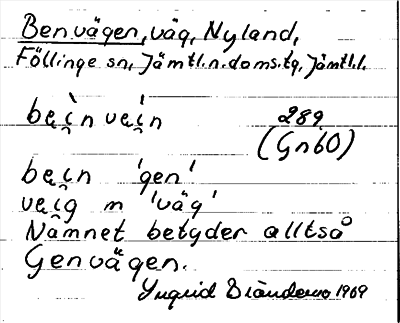 Benvägen, väg, Nyland,
Föllinge sn, Jämtl.n.doms.tg, Jämtl.l.
beì̯n veí̯n 289
(Gnb0)
bei̯n 'gen'
vei̯g m 'väg'
Namnet betyder alltså
Genvägen.
Yngrid 1969